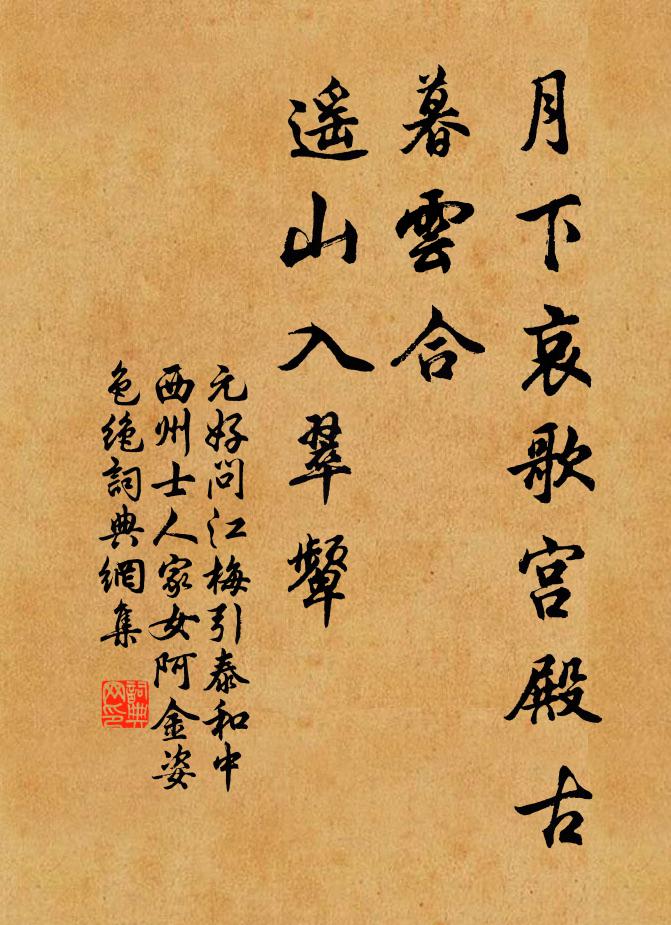 月下哀歌宮殿古
暮雲合
遙山入翠顰
元好問江梅引泰和中
西州士人家女阿金姿
色絕詞典網集
詞典网印